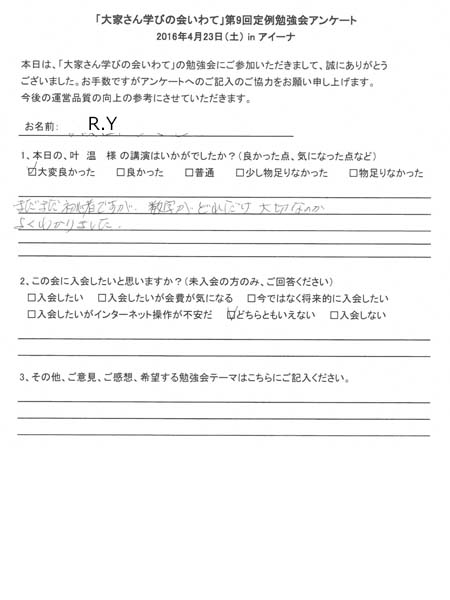 「大家さん学びの会いわて」第9回定例勉強会アンケート
2016年4月23日(土) in アイーナ
本日は、「大家さん学びの会いわて」の勉強会にご参加いただきまして、誠にありがとう
ございました。お手数ですがアンケートへのご記入のご協力をお願い申し上げます。
今後の運営品質の向上の参考にさせていただきます。
お名前: R.Y
1、本日の、叶 温 様 の講演はいかがでしたか?(良かった点、気になった点など)
☑大変良かった □良かった □普通 □少し物足りなかった □物足りなかった
まだまだ初心者ですが、数字がどれだけ大切なのか
よくわかりました。
2、この会に入会したいと思いますか?(未入会の方のみ、ご回答ください)
□入会したい □入会したいが会費が気になる □今ではなく将来的に入会したい
□入会したいがインターネット操作が不安だ ☑どちらともいえない □入会しない
3、その他、ご意見、ご感想、希望する勉強会テーマはこちらにご記入ください。